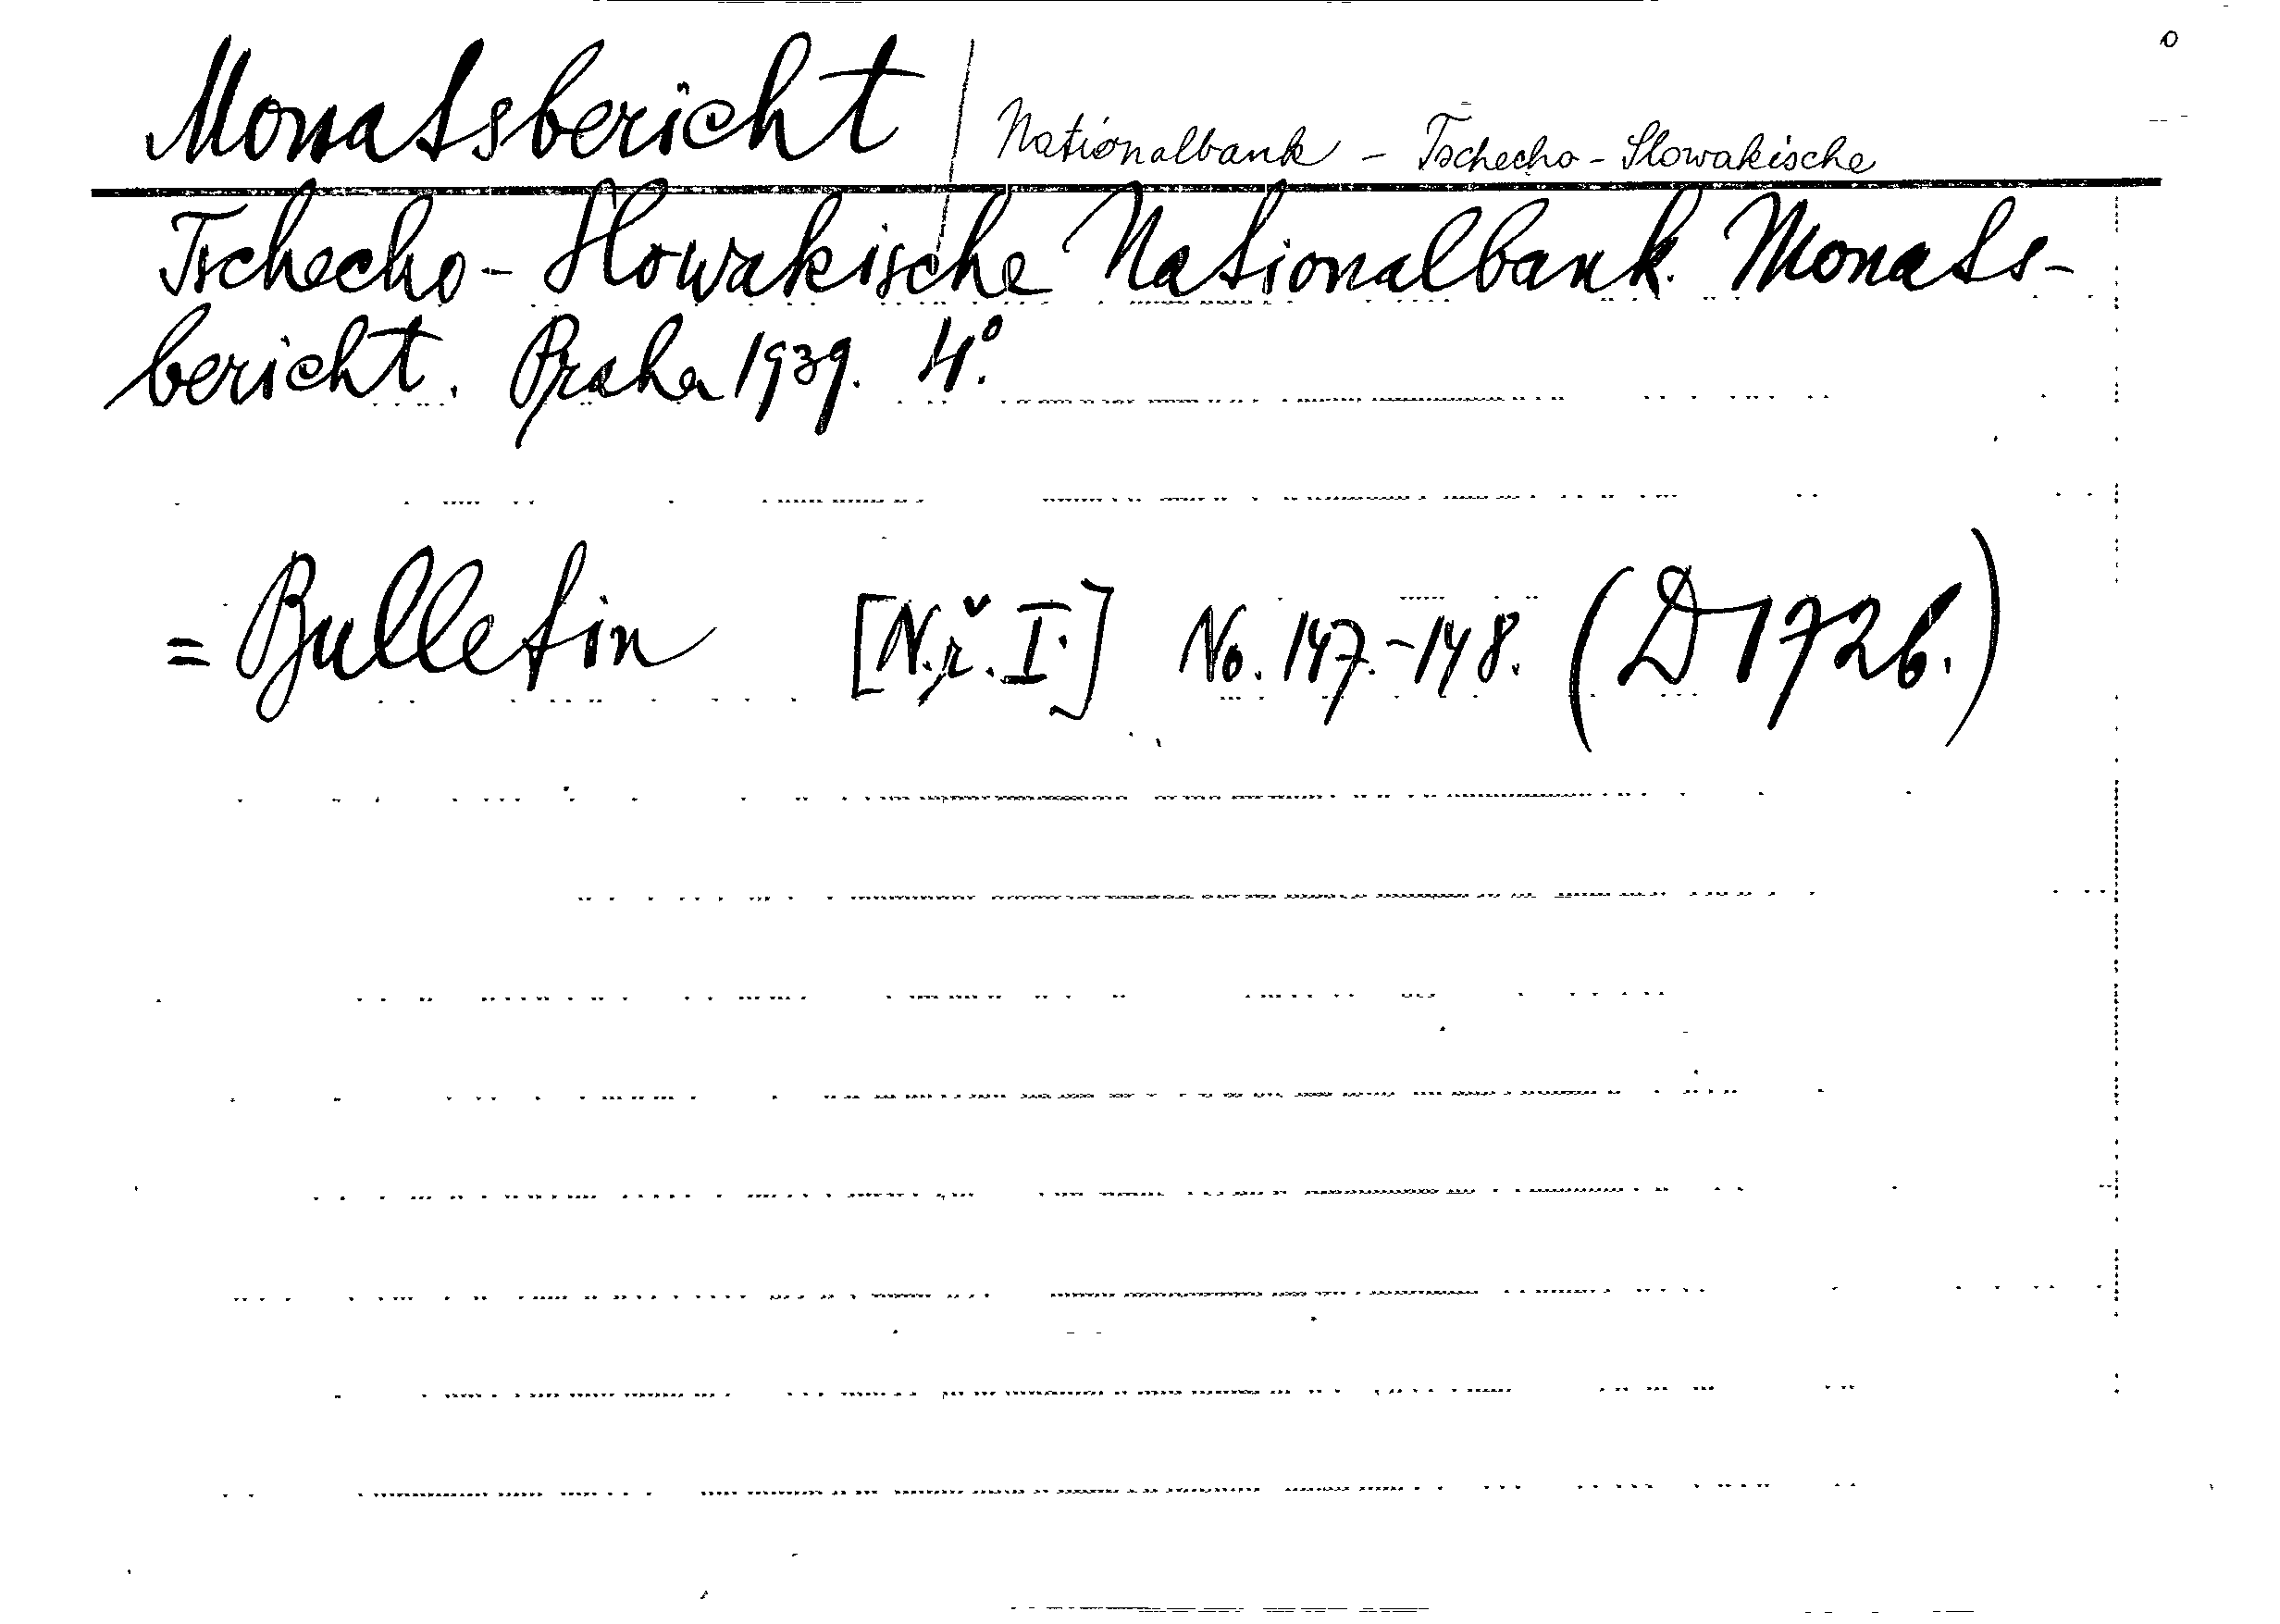 Monatsbericht / Nationalbank - Tschecho-Slowakische
Tschecho-Slowakische Nationalbank. Monats-
bericht. Praha 1939. 4°.
= Bulletin [N.ř.I.] No. 147.-148. (D 172b.)